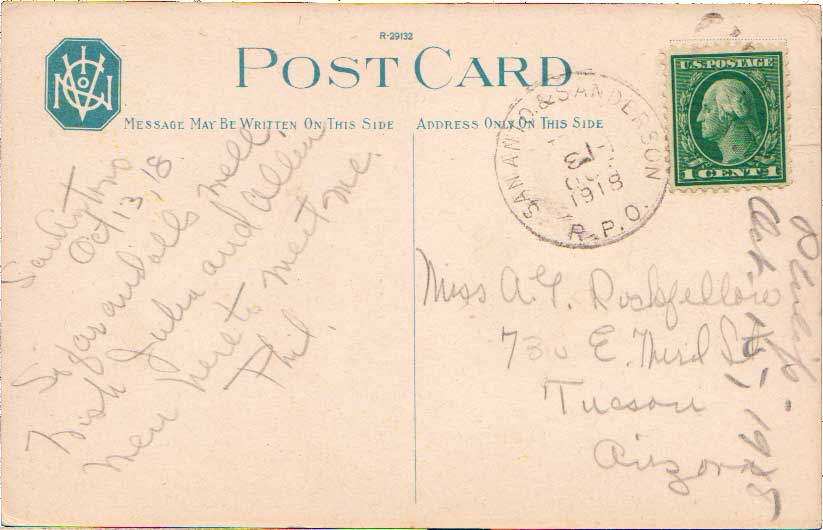 R-29132
POST CARD
MESSAGE MAY BE WRITTEN ON THIS SIDE
ADDRESS ONLY ON THIS SIDE
SAN ANTO. & SANDERSON
1918
R.P.O.
U.S. POSTAGE
1 CENT 1
San Antonio
Oct 13, 18
So far and all's well.
Wish Julia and Allen
were here to meet me.
Phil.
Miss A.G. Rockfellow
730 E. Third St
Tucson
Arizona
Philip.
Oct. 1918